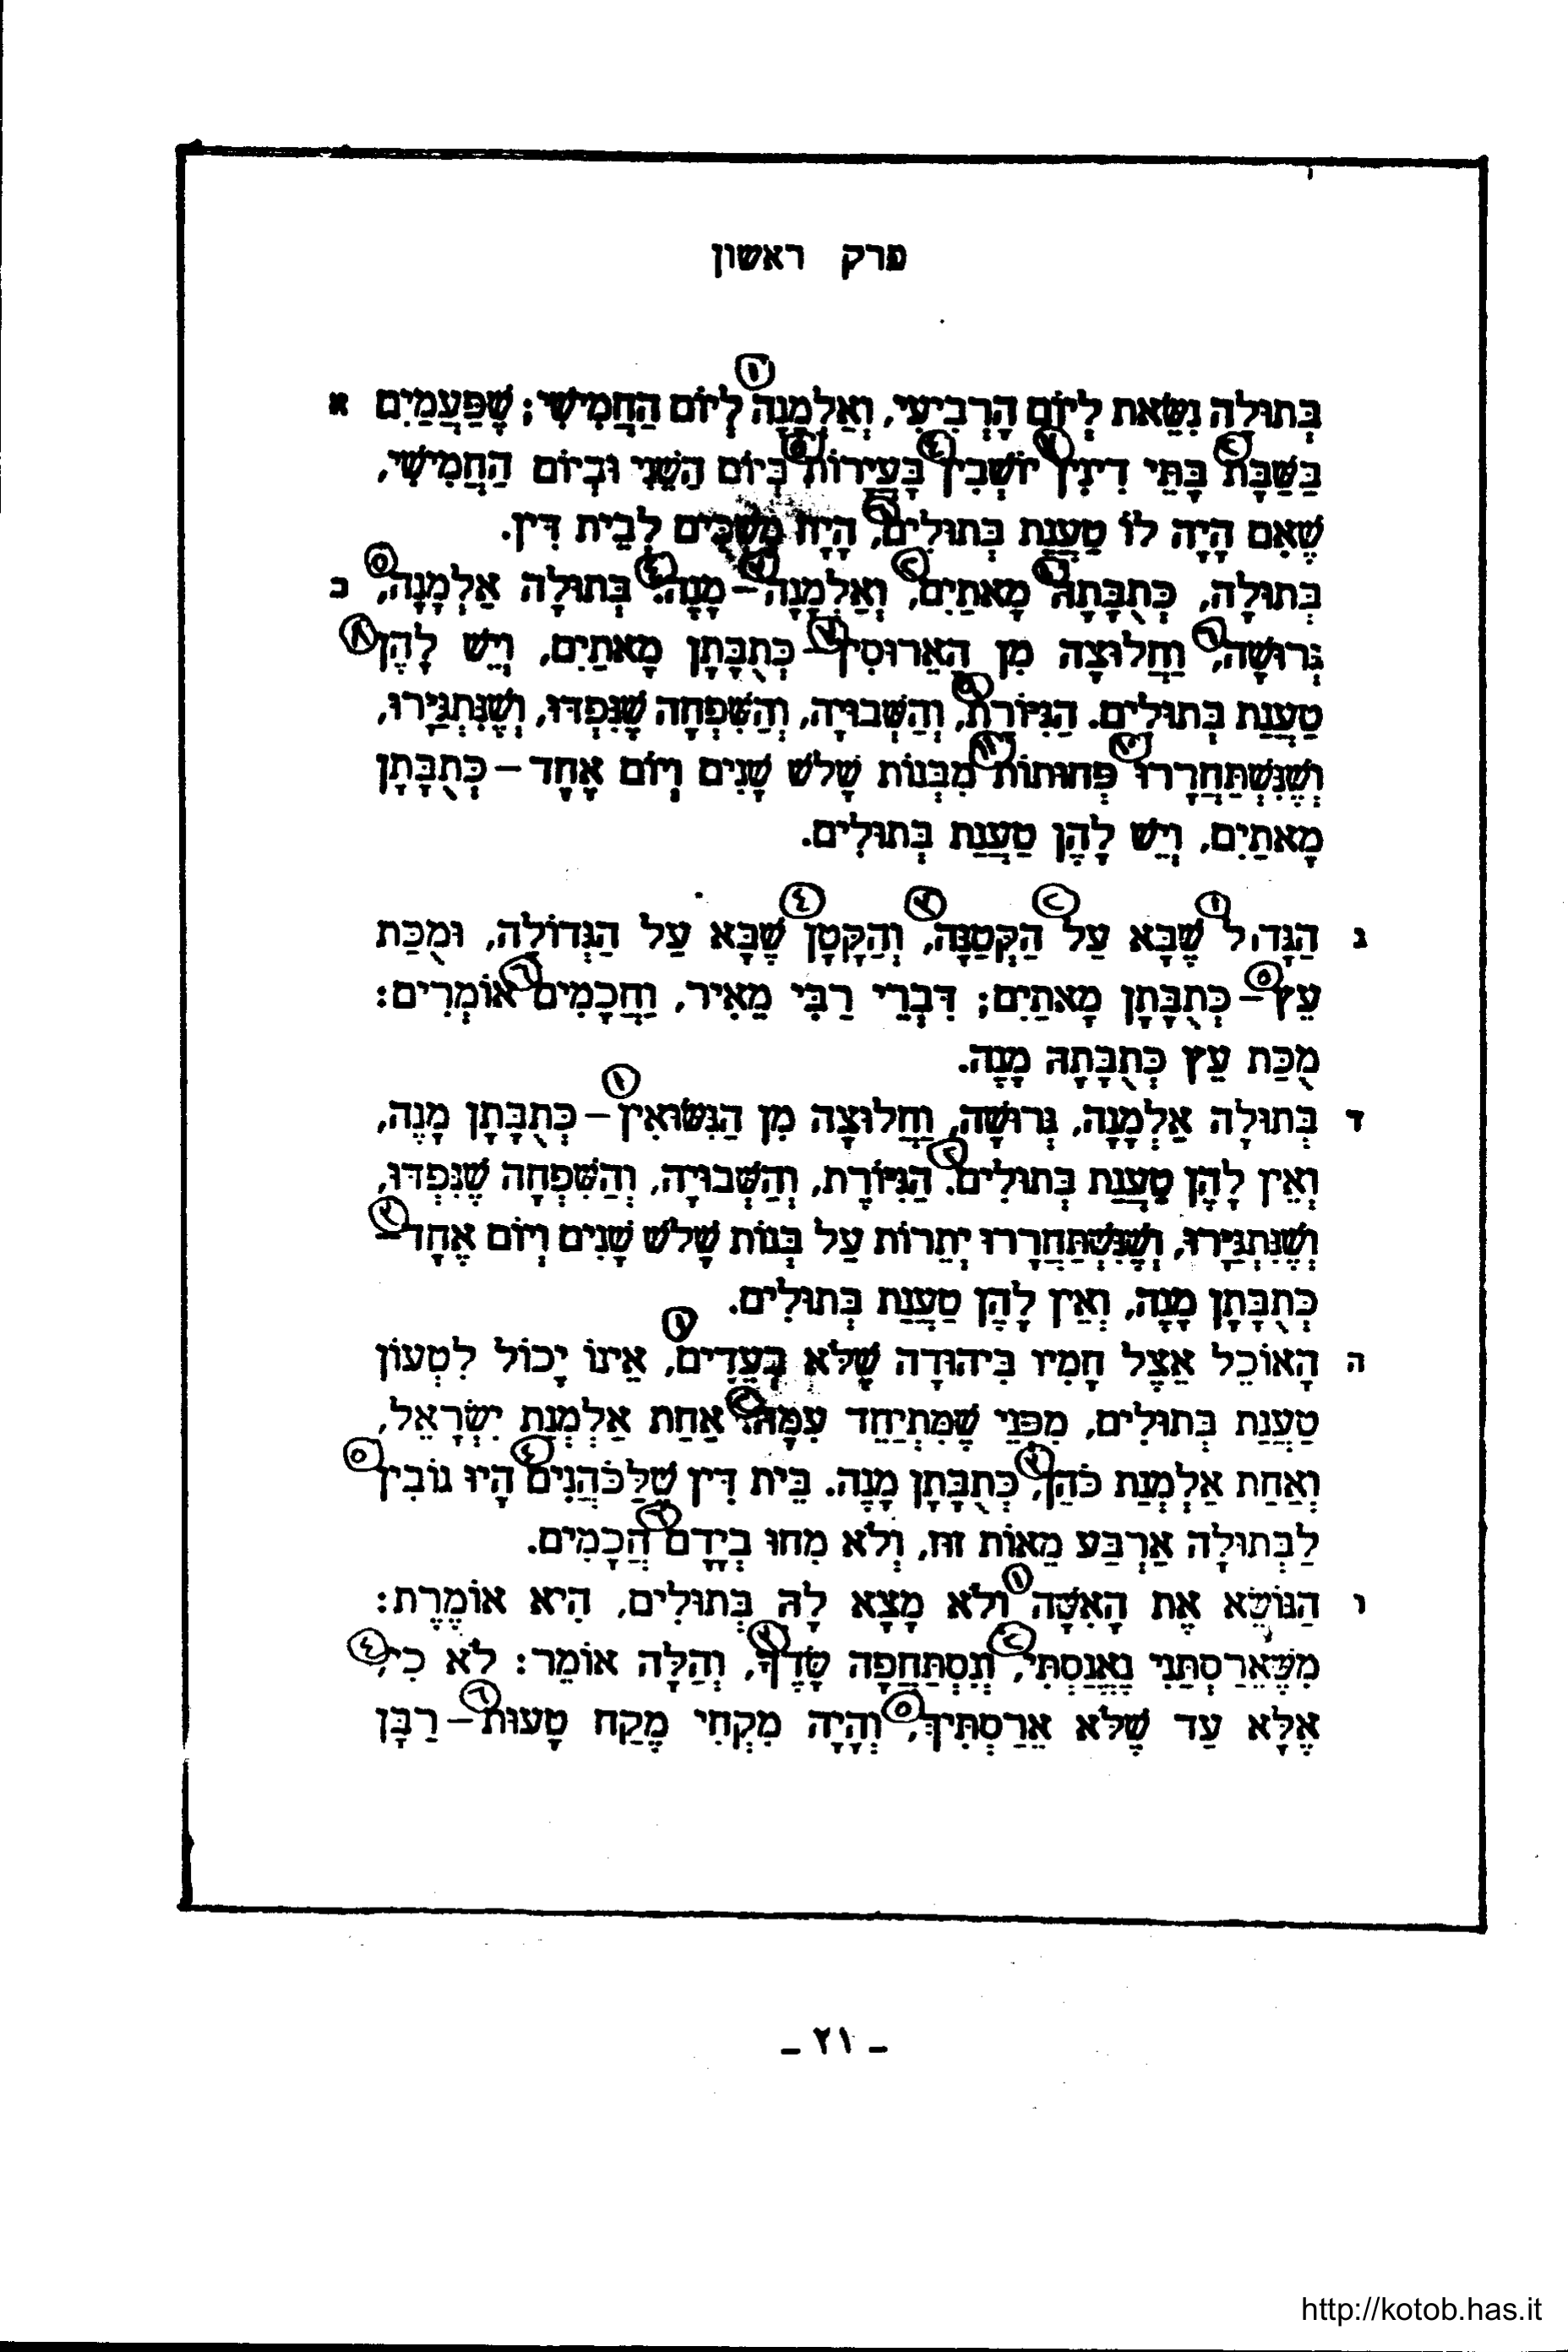 פרק ראשון
①
א בְּתוּלָה נִשֵּׂאת לְיוֹם הָרְבִיעִי, וְאַלְמָנָה לְיוֹם הַחֲמִישִׁי; שֶׁפַּעֲמַיִם
בַּשַּׁבָּת בָּתֵּי דִינִין יוֹשְׁבִין בָּעֲיָרוֹת בְּיוֹם הַשֵּׁנִי וּבְיוֹם הַחֲמִישִׁי,
שֶׁאִם הָיָה לוֹ טַעֲנַת בְּתוּלִים, הָיָה מַשְׁכִּים לְבֵית דִּין.
ב בְּתוּלָה, כְּתֻבָּתָהּ מָאתַיִם, וְאַלְמָנָה – מָנֶה. בְּתוּלָה אַלְמָנָה,
גְּרוּשָׁה, וַחֲלוּצָה מִן הָאֵרוּסִין – כְּתֻבָּתָן מָאתַיִם, וְיֵשׁ לָהֶן
טַעֲנַת בְּתוּלִים. הַגִּיּוֹרֶת, וְהַשְּׁבוּיָה, וְהַשִּׁפְחָה שֶׁנִּפְדּוּ, וְשֶׁנִּתְגַּיְּרוּ,
וְשֶׁנִּשְׁתַּחְרָרוּ פְּחוּתוֹת מִבְּנוֹת שָׁלשׁ שָׁנִים וְיוֹם אֶחָד – כְּתֻבָּתָן
מָאתַיִם, וְיֵשׁ לָהֶן טַעֲנַת בְּתוּלִים.
ג הַגָּדוֹל שֶׁבָּא עַל הַקְּטַנָּה, וְהַקָּטָן שֶׁבָּא עַל הַגְּדוֹלָה, וּמֻכַּת
עֵץ – כְּתֻבָּתָן מָאתַיִם; דִּבְרֵי רַבִּי מֵאִיר, וַחֲכָמִים אוֹמְרִים:
מֻכַּת עֵץ כְּתֻבָּתָהּ מָנֶה.
ד בְּתוּלָה אַלְמָנָה, גְּרוּשָׁה, וַחֲלוּצָה מִן הַנִּשּׂוּאִין – כְּתֻבָּתָן מָנֶה,
וְאֵין לָהֶן טַעֲנַת בְּתוּלִים. הַגִּיּוֹרֶת, וְהַשְּׁבוּיָה, וְהַשִּׁפְחָה שֶׁנִּפְדּוּ,
וְשֶׁנִּתְגַּיְּרוּ, וְשֶׁנִּשְׁתַּחְרָרוּ יְתֵרוֹת עַל בְּנוֹת שָׁלשׁ שָׁנִים וְיוֹם אֶחָד –
כְּתֻבָּתָן מָנֶה, וְאֵין לָהֶן טַעֲנַת בְּתוּלִים.
ה הָאוֹכֵל אֵצֶל חָמִיו בִּיהוּדָה שֶׁלֹּא בְעֵדִים, אֵינוֹ יָכוֹל לִטְעוֹן
טַעֲנַת בְּתוּלִים, מִפְּנֵי שֶׁמִּתְיַחֵד עִמָּהּ. אַחַת אַלְמְנַת יִשְׂרָאֵל,
וְאַחַת אַלְמְנַת כֹּהֵן, כְּתֻבָּתָן מָנֶה. בֵּית דִּין שֶׁלַּכֹּהֲנִים הָיוּ גוֹבִין
לַבְּתוּלָה אַרְבַּע מֵאוֹת זוּז, וְלֹא מִחוּ בְיָדָם חֲכָמִים.
ו הַנּוֹשֵׂא אֶת הָאִשָּׁה וְלֹא מָצָא לָהּ בְּתוּלִים, הִיא אוֹמֶרֶת:
מִשֶּׁאֵרַסְתַּנִי נֶאֱנַסְתִּי, וְנִסְתַּחֲפָה שָׂדְךָ, וְהַלָּה אוֹמֵר: לֹא כִי,
אֶלָּא עַד שֶׁלֹּא אֵרַסְתִּיךְ, וְהָיָה מִקְחִי מֶקַח טָעוּת – רַבָּן
– ٢١ –
http://kotob.has.it